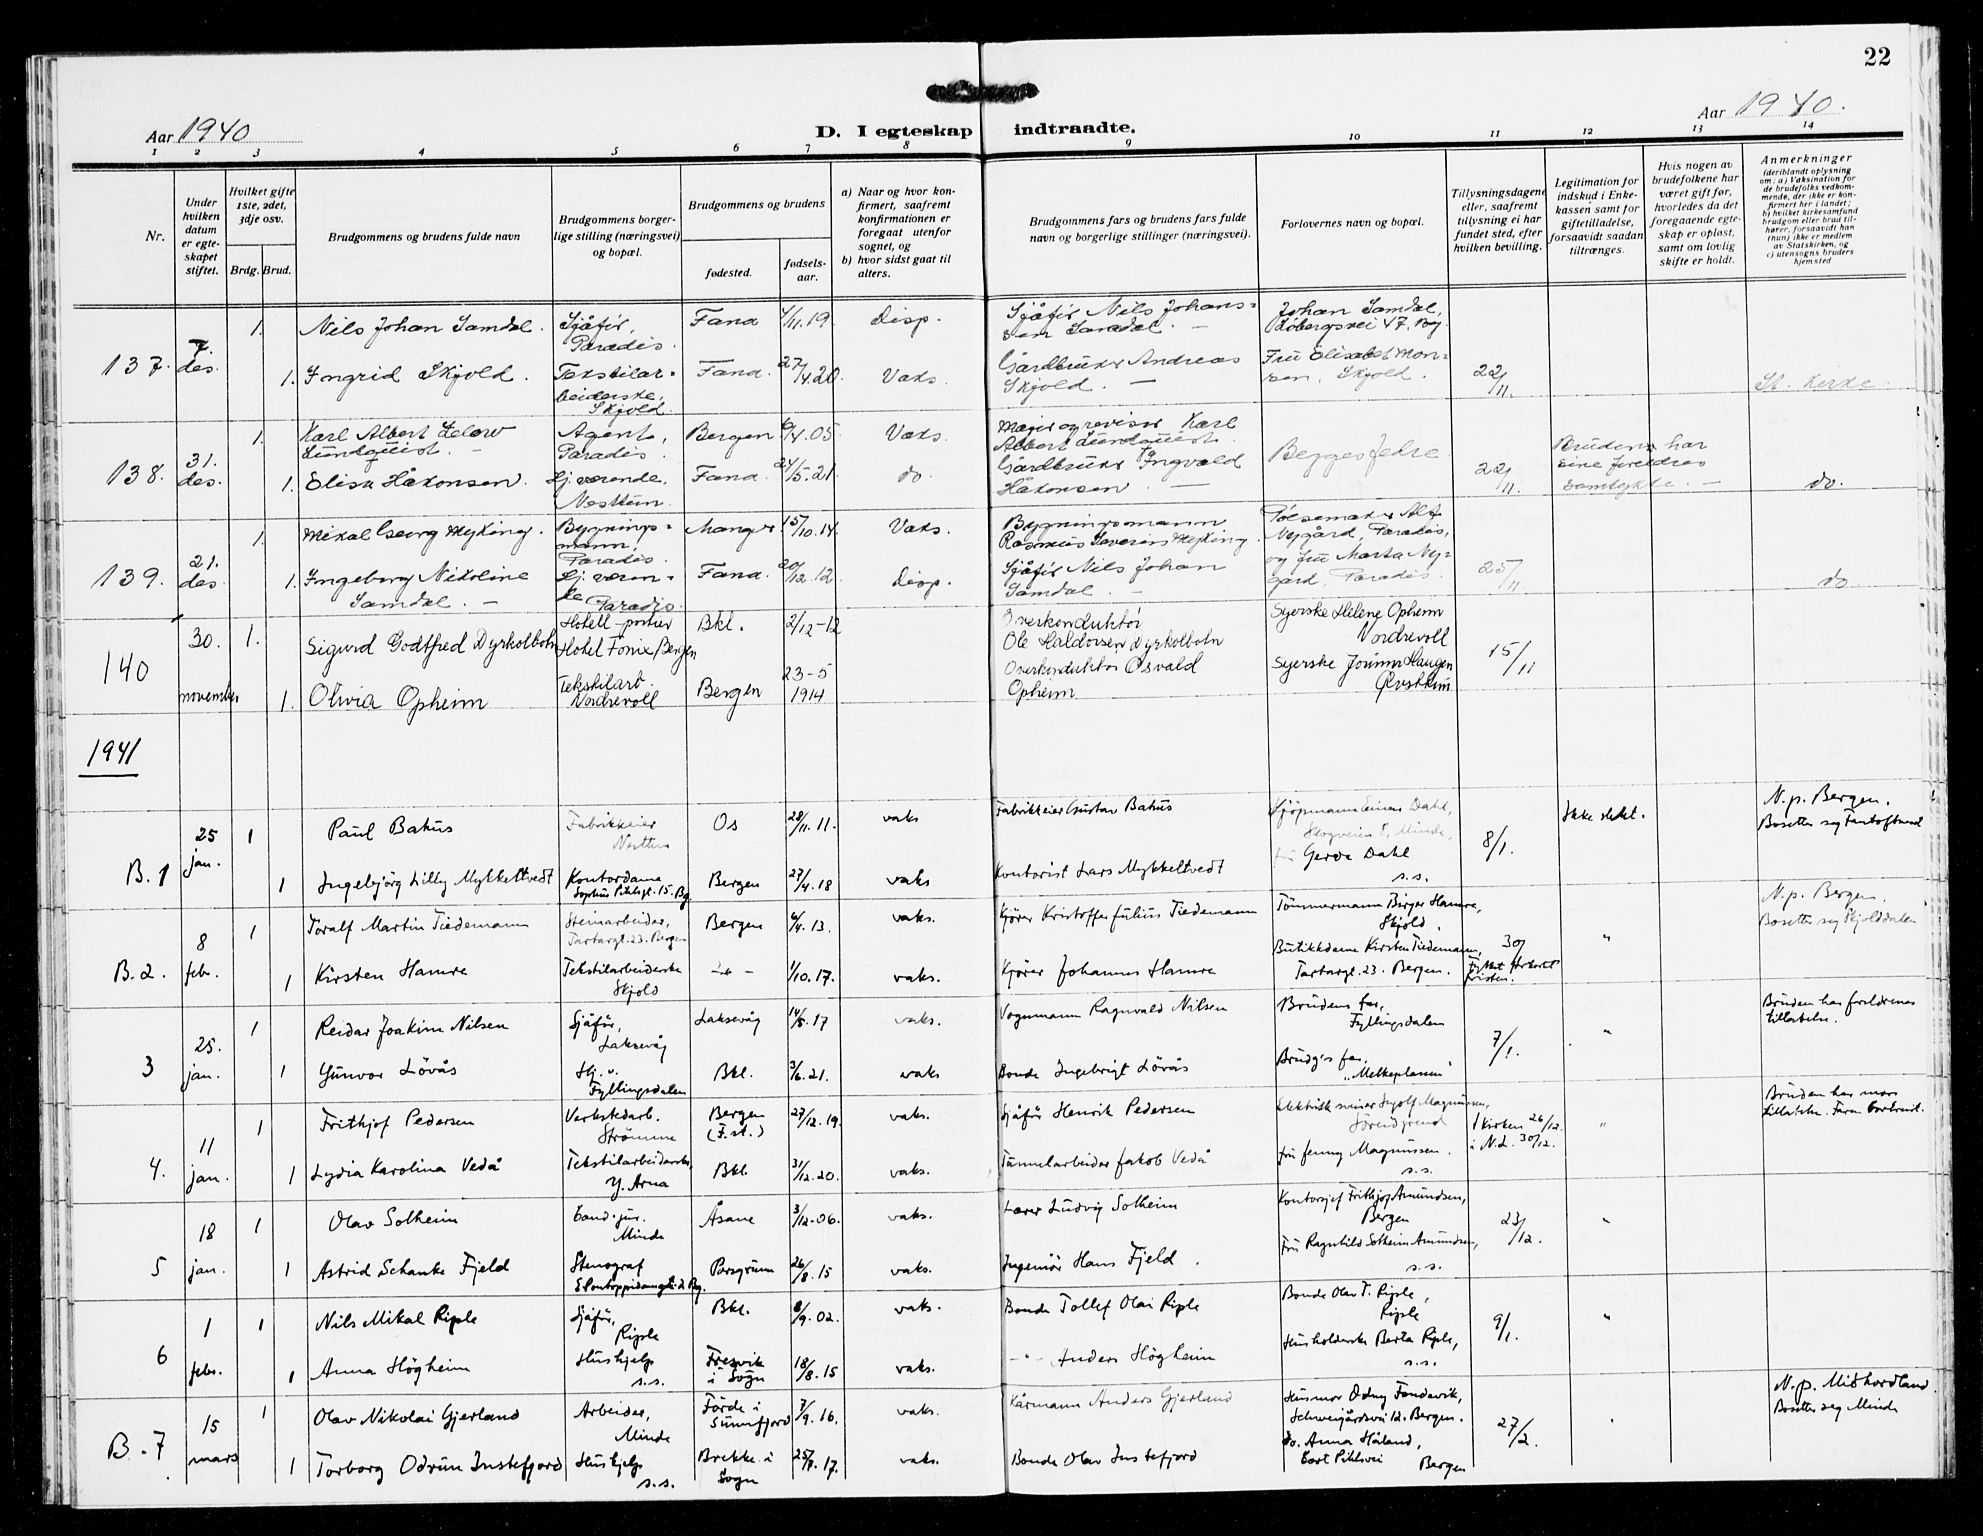 22
Aar 1940
D. I egteskap indtraadte.
Aar 1940.
1 2 3 4 5 6 7 8 9 10 11 12 13 14
Nr.
Under hvilken datum er egteskapet stiftet.
Hvilket gifte 1ste, 2det, 3dje osv.
Brdg. Brud.
Brudgommens og brudens fulde navn
Brudgommens borgerlige stilling (næringsvei) og bopæl.
Brudgommens og brudens
fødested.
fødselsaar.
a) Naar og hvor konfirmert, saafremt konfirmationen er foregaat utenfor sognet, og
b) hvor sidst gaat til alters.
Brudgommens fars og brudens fars fulde navn og borgerlige stillinger (næringsvei).
Forlovernes navn og bopæl.
Tillysningsdagene eller, saafremt tillysning ei har fundet sted, efter hvilken bevilling.
Legitimation for indskud i Enkekassen samt for giftetilladelse, forsaavidt saadan tiltrænges.
Hvis nogen av brudefolkene har været gift før, hvorledes da det foregaaende egteskap er opløst, samt om lovlig skifte er holdt.
Anmerkninger
(deriblandt oplysning om: a) Vaksination for de brudefolks vedkommende, der ikke er konfirmert her i landet; b) hvilket kirkesamfund brudgom eller brud tilhører, forsaavidt han (hun) ikke er medlem av Statskirken, og c) utensogns bruders hjemsted
137. 7. des. 1. Nils Johan Samdal. Sjåfør, Paradis. Fana 4/11.19 Disp. Sjåfør Nils Johansen Samdal. — Johan Samdal, Løbergsvei 47. Bg.
1. Ingrid Skjold. Tekstilarbeiderske, Skjold. Fana. 27/4.20. Vaks. Gårdbruker Andreas Skjold. — Fru Elisabet Monsen, Skjold. 22/11. St. kirke
138. 31. des. 1. Karl Albert Lundquist. — Agent, Paradis. Bergen 6/4.05 Vaks. Karl Albert Lundquist.
1. Elise Håkonsen. Hj. værende, Nesttun. Fana. 24/5.21. do. Gårdbruker Ingvald Håkonsen. — Begges fedre 22/11. Bruden har sine foreldres samtykke. — do.
139. 21. des. 1. Mikal Georg Myking. Bygningsmann, Paradis. Manger 15/10.14 Vaks. Bygningsmann Rasmus Severin Myking. Pølsemaker Alf Nygård, Paradis,
1. Ingeborg Nikoline Samdal. — Hj. værende Paradis. Fana. 20/12.12. Disp. Sjåfør Nils Johan Samdal. — og fru Marta Nygård, Paradis. 25/11 do
140 30. november 1. Sigurd Godtfred Dyrkolbotn Hotell-portier Hotel Fønix, Bergen Bkl. 2/12-12 Overkonduktør Ole Haldorsen Dyrkolbotn Syerske Helene Opheim Nordrevoll 15/11
1. Olivia Opheim Tekstilarb. Nordrevoll Bergen 23-5 1914 Overkonduktør Osvald Opheim. Syerske Jorunn Haugen
1941
B. 1 25 jan. 1 Paul Bahus Fabrikkeier Nesttun Os 28/11.11. vaks Fabrikkeier Gustav Bahus Kjøpmann Einar Dahl, Minde, fru Gerda Dahl s.s. 8/1. Ikke slekt. N.p. Bergen.
1 Ingebjørg Lilly Mykkeltvedt Kontordame Sophus Pihlsgt. 15. Bg. Bergen 27/4.18 vaks Kontorist Lars Mykkeltvedt
B. 2. 8 febr. 1 Toralf Martin Tiedemann Steinarbeider, Tartargt. 23. Bergen Bergen 6/4.13. vaks. Kjører Kristoffer Julius Tiedemann Tømmermann Birger Hamre, Skjold. 30 " N.p. Bergen. Bosetter seg Skjolddalen
1 Kirsten Hamre Tekstilarbeiderske Skjold -"- 1/10.17. vaks. Kjører Johannes Hamre Butikkdame Kirsten Tiedemann, Tartargt. 23. Bergen.
3 25. jan. 1 Reidar Joakim Nilsen Sjåfør, Laksevåg Laksevåg 14/5.17 vaks. Vognmann Ragnvald Nilsen Brudens far, Fyllingsdalen 7/1. " Bruden har foreldrenes tillatelse.
1 Gunvor Lövås Hj. v. Fyllingsdalen Bkl. 3/6.21. vaks Bonde Ingebrigt Lövås Brudg's far, "Melkeplassen"
4. 11 jan. 1 Frithjof Pedersen Verkstedarb. Strømme Bergen (F.st.) 27/12.19. vaks. Sjåfør Henrik Pedersen Magnussen, I kirken 26/12. i N.L. 30/12. " Bruden har mors tillatelse. Faren bortreist.
1 Lydia Karolina Vedå Tekstilarbeiderske, Y. Arna Bkl 31/12.20. vaks. Tunnelarbeider Jakob Vedå fru Jenny Magnussen. s.s.
5 18 jan. 1 Olav Solheim Cand. jur. Minde Åsane 3/12-06. vaks. Lærer Ludvig Solheim Kontorsjef Frithjof Amundsen, Bergen 23/12. "
1 Astrid Schanke Fjeld Stenograf Bg. Porsgrunn 26/8.15 vaks. Ingeniør Hans Fjeld. Fru Ragnhild Solheim Amundsen, s.s.
6 1 febr. 1 Nils Mikal Riple Sjåfør, Riple Bkl. 8/9.02. vaks. Bonde Tollef Olai Riple Bonde Olav T. Riple, Riple 9/1. "
1 Anna Högheim Hushjelp s.s. Fresvik i Sogn 18/8.15 vaks. -"- Anders Högheim Husholderske Berta Riple, s.s.
B. 7 15 mars 1 Olav Nikolai Gjerland Arbeider, Minde Förde i Sunnfjord 7/9.16. vaks. Kårmann Anders Gjerland Husmor Odny Fondevik, Schweigårdsvei 12. Bergen. 27/2. " N.p. Midhordland. Bosetter seg Minde
1 Torborg Odrun Instefjord Hushjelp s.s. Brekke i Sogn 25/7.17. vaks. Bonde Olav Instefjord do. Anna Håland, Bergen